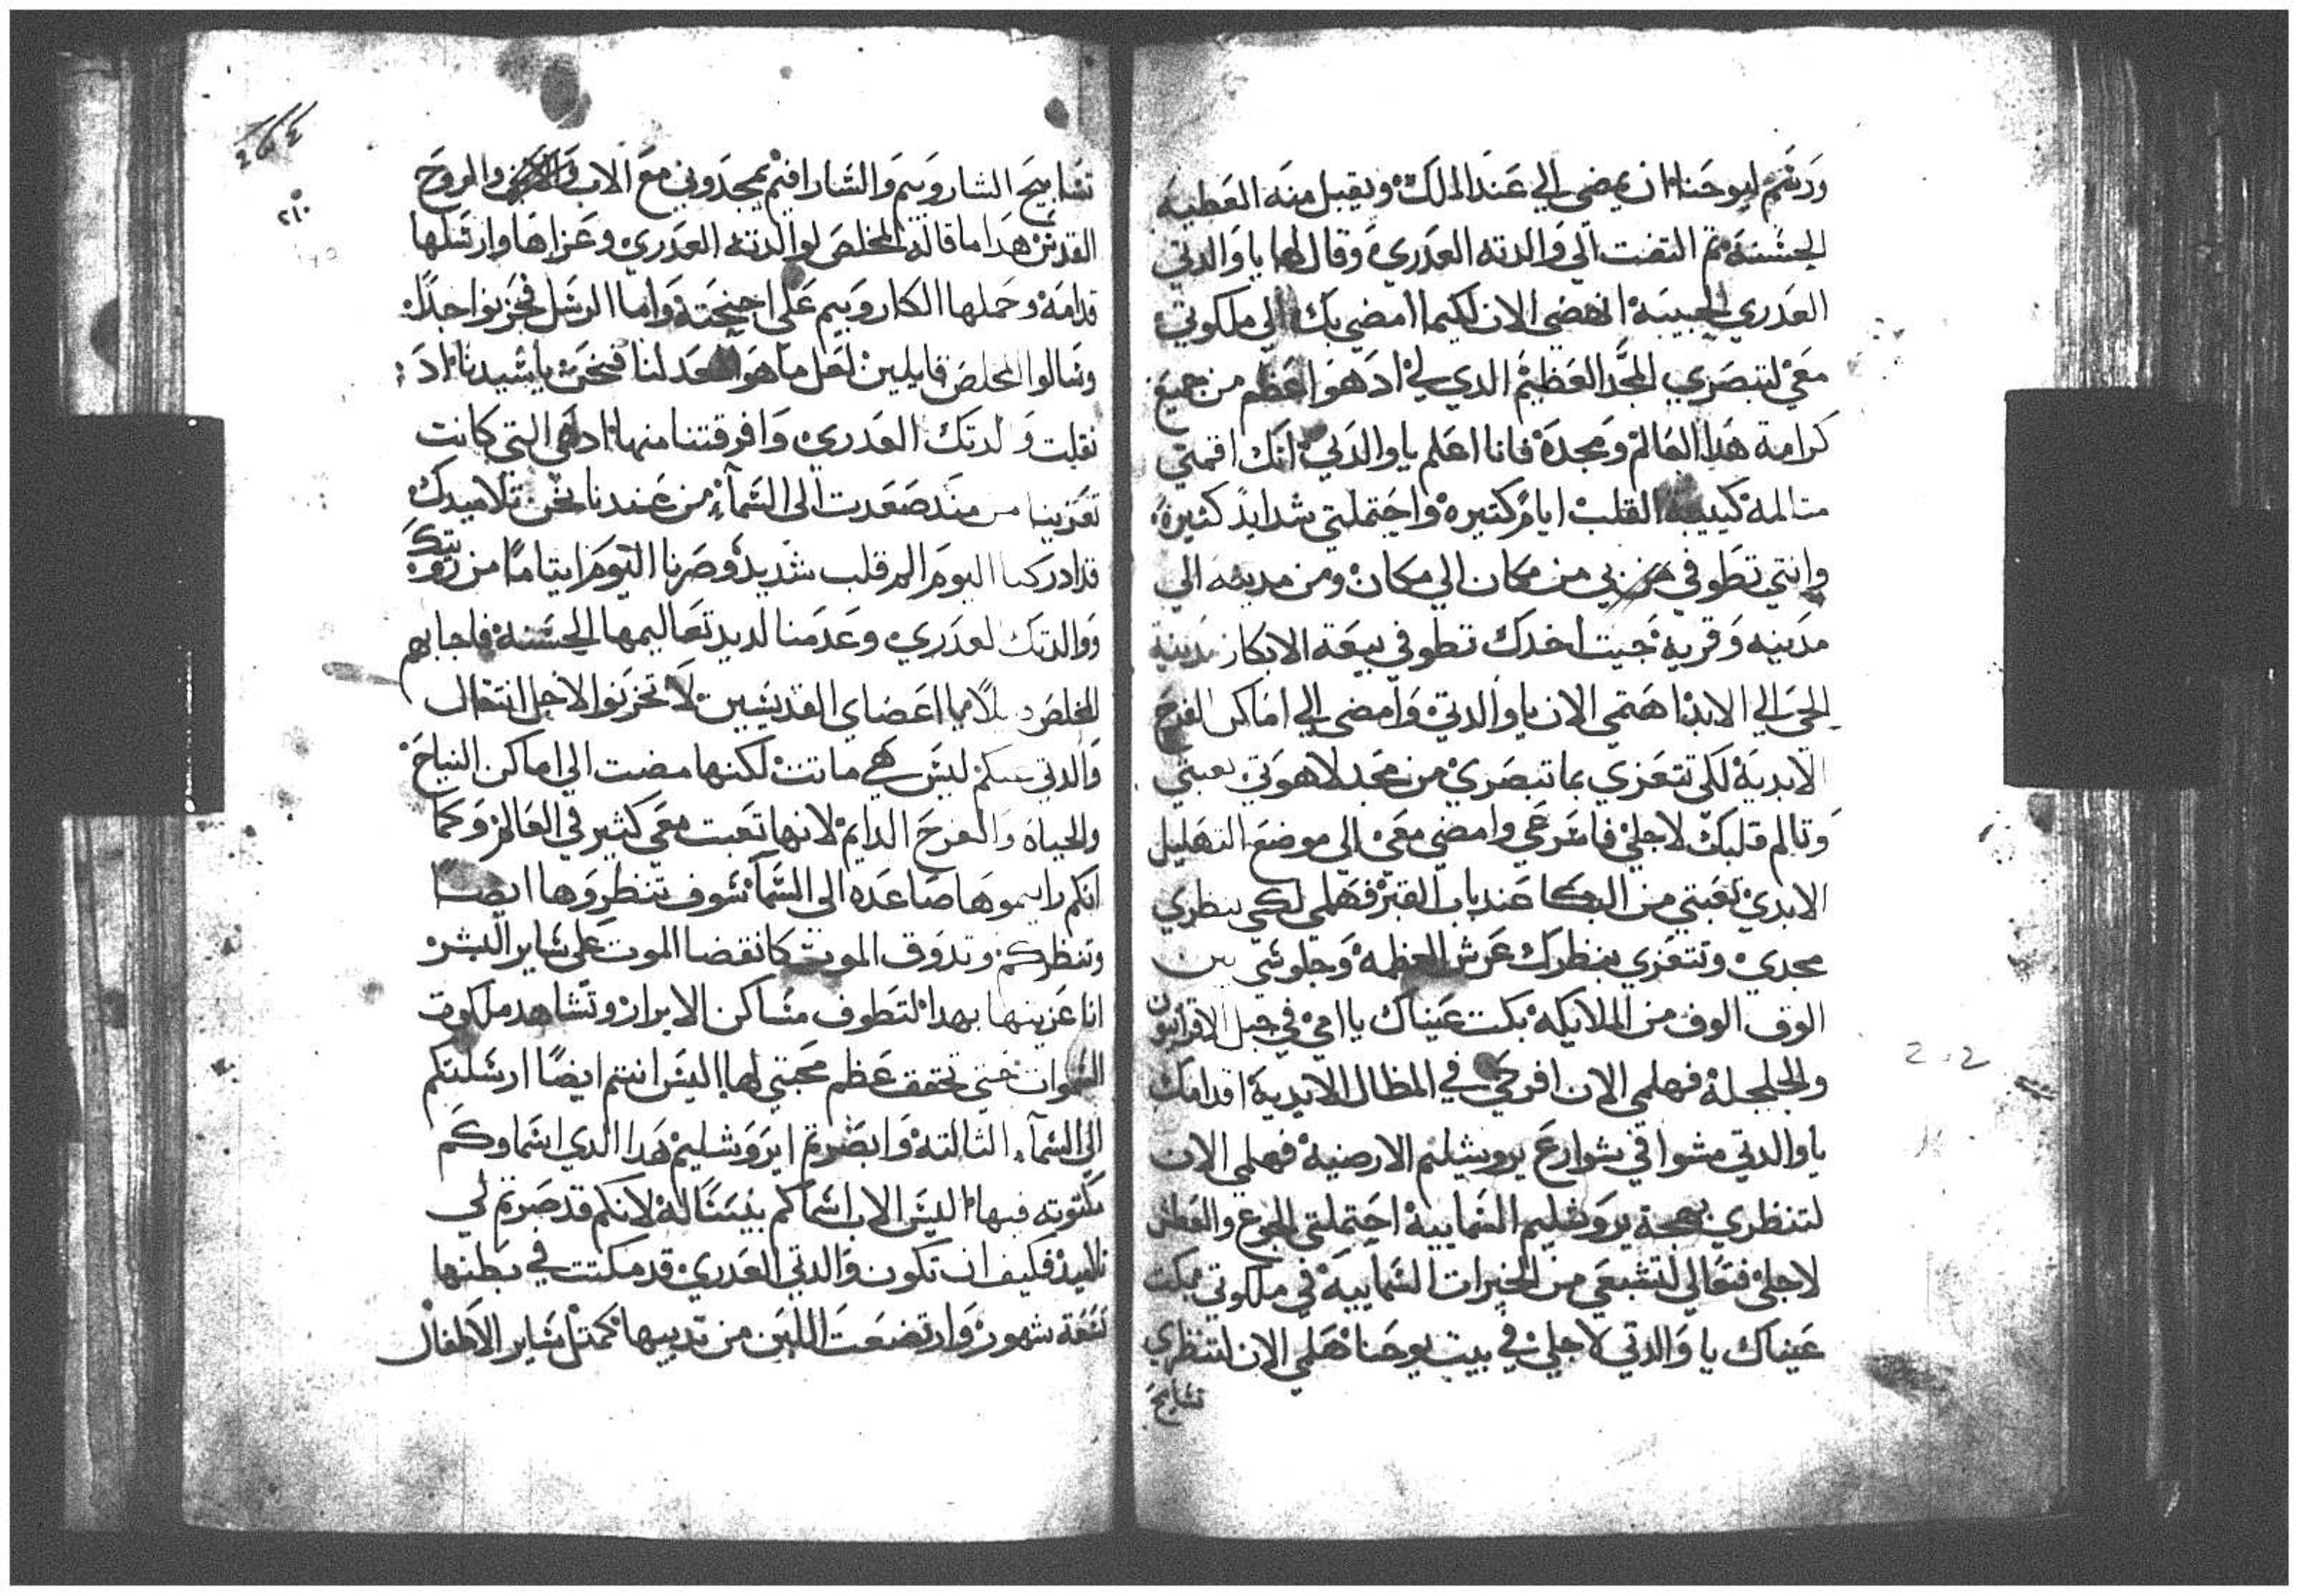 ورسم ليوحنا ان يمضي الي عند الملك ويقبل منه العطيه
الحسنة تم التفت الي والدته العدري وقال لها يا والدتي
العدري الحبيبة انهضي الان لكيما امضي بك الي ملكوتي
معي لتبصري المجد العظيم الدي لي اد هو اعظم من جميع
كرامة هدا العالم ومجده فانا اعلم يا والدتي انك اقمتي
متالمة كييبة القلب ايام كتيره واحتملتي شدايد كثيرة
وانتي تطوفي من مكان الي مكان ومن مدينه الي
مدينه وقرية جيت اخدك تطوفي بيعة الابكار مدينة
الحي الي الابد اهتمي الان يا والدتي وامضي الي اماكن الفرح
الابدية لكي تتعزي بما تبصري من مجد لاهوتي تعبتي
وتالم قلبك لاجلي فاسرعي وامضي معي الي موضع التهليل
الابدي تعبتي من البكا عند باب القبر فهلمي لكي تنظري
مجدي وتتعزي بنظرك عرش العظمة وجلوسي بين
الوف الوف من الملايكة بكت عيناك يا امي في جبل الاقرانيون
والجلجلة فهلمي الان افرحي في المظال الابدية اقدامك
يا والدتي مشوا في شوارع يروشليم الارضية فهلمي الان
لتنظري بهجة يروشليم السمايية احتملتي الجوع والعطش
لاجلي فتعالي لتشبعي من الخيرات السمايية في ملكوتي بكت
عيناك يا والدتي لاجلي في بيت يوحنا هلمي الان لتنظري
تسابيح
264
٢١٠
تسابيح الشاروبيم والسارافيم يمجدوني مع الاب والروح
القدس هدا ما قاله المخلص لوالدته العدري وعزاها وارسلها
قدامه وحملها الكاروبيم علي اجنحته واما الرسل فحزنوا جدا
وسالوا المخلص قايلين لعل ما هو لنا فنحن يا سيدنا اد
نقلت والدتك العدري وافرقتنا منها اد هي التي كانت
تعزينا من مند صعدت الي السمآء من عندنا نحن تلاميدك
قد ادركنا اليوم الم قلب شديد وصرنا اليوم ايتاما من
ووالدتك العدري وعدمنا لديد تعاليمها الحسنة فاجابهم
المخلص قايلا يا اعضاي القديسين لا تحزنوا لاجل انتقال
والدتي عنكم ليس هي ماتت لكنها مضت الي اماكن النياح
والحياه والفرح الدايم لانها تعبت معي كثير في العالم وكما
انكم رايتموها صاعده الي السمآ سوف تنظروها ايضا
وتنظركم وتدوق الموت كانقضا الموت علي ساير البشر
انا عزيتها بهدا لتطوف مساكن الابرار وتشاهد ملكوت
السموات حتي تحقق عظم محبتي لها اليس انتم ايضا ارسلتكم
الي السمآء الثالتة وابصرتم ايروشليم هدا الدي اسماوكم
مكتوته فيها اليس الاب اسماكم بنيسالة لانكم قد صبرتم لي
تلاميد فكيف ان تكون والدتي العدري قد مكتت في بطنها
تسعة شهور وارتضعت اللبن من تدييها كمتل ساير الاطفال